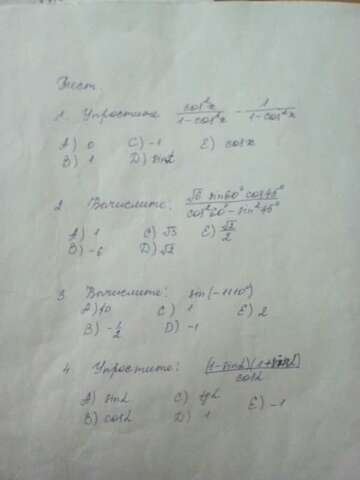 Тест.
1. Упростите cos²x/(1-cos²x) - 1/(1-cos²x)
A) 0 C) -1 E) cosx
B) 1 D) sin2
2 Вычислите: √6 sin60° cos45°/(cos²60° - sin²45°)
A) 1 C) √3 E) √2/2
B) -6 D) √2
3 Вычислите: sin(-1110°)
A) 0 C) 1 E) 2
B) -1/2 D) -1
4 Упростите: (1-sinα)(1+sinα)/cosα
A) sinα C) tgα E) -1
B) cosα D) 1